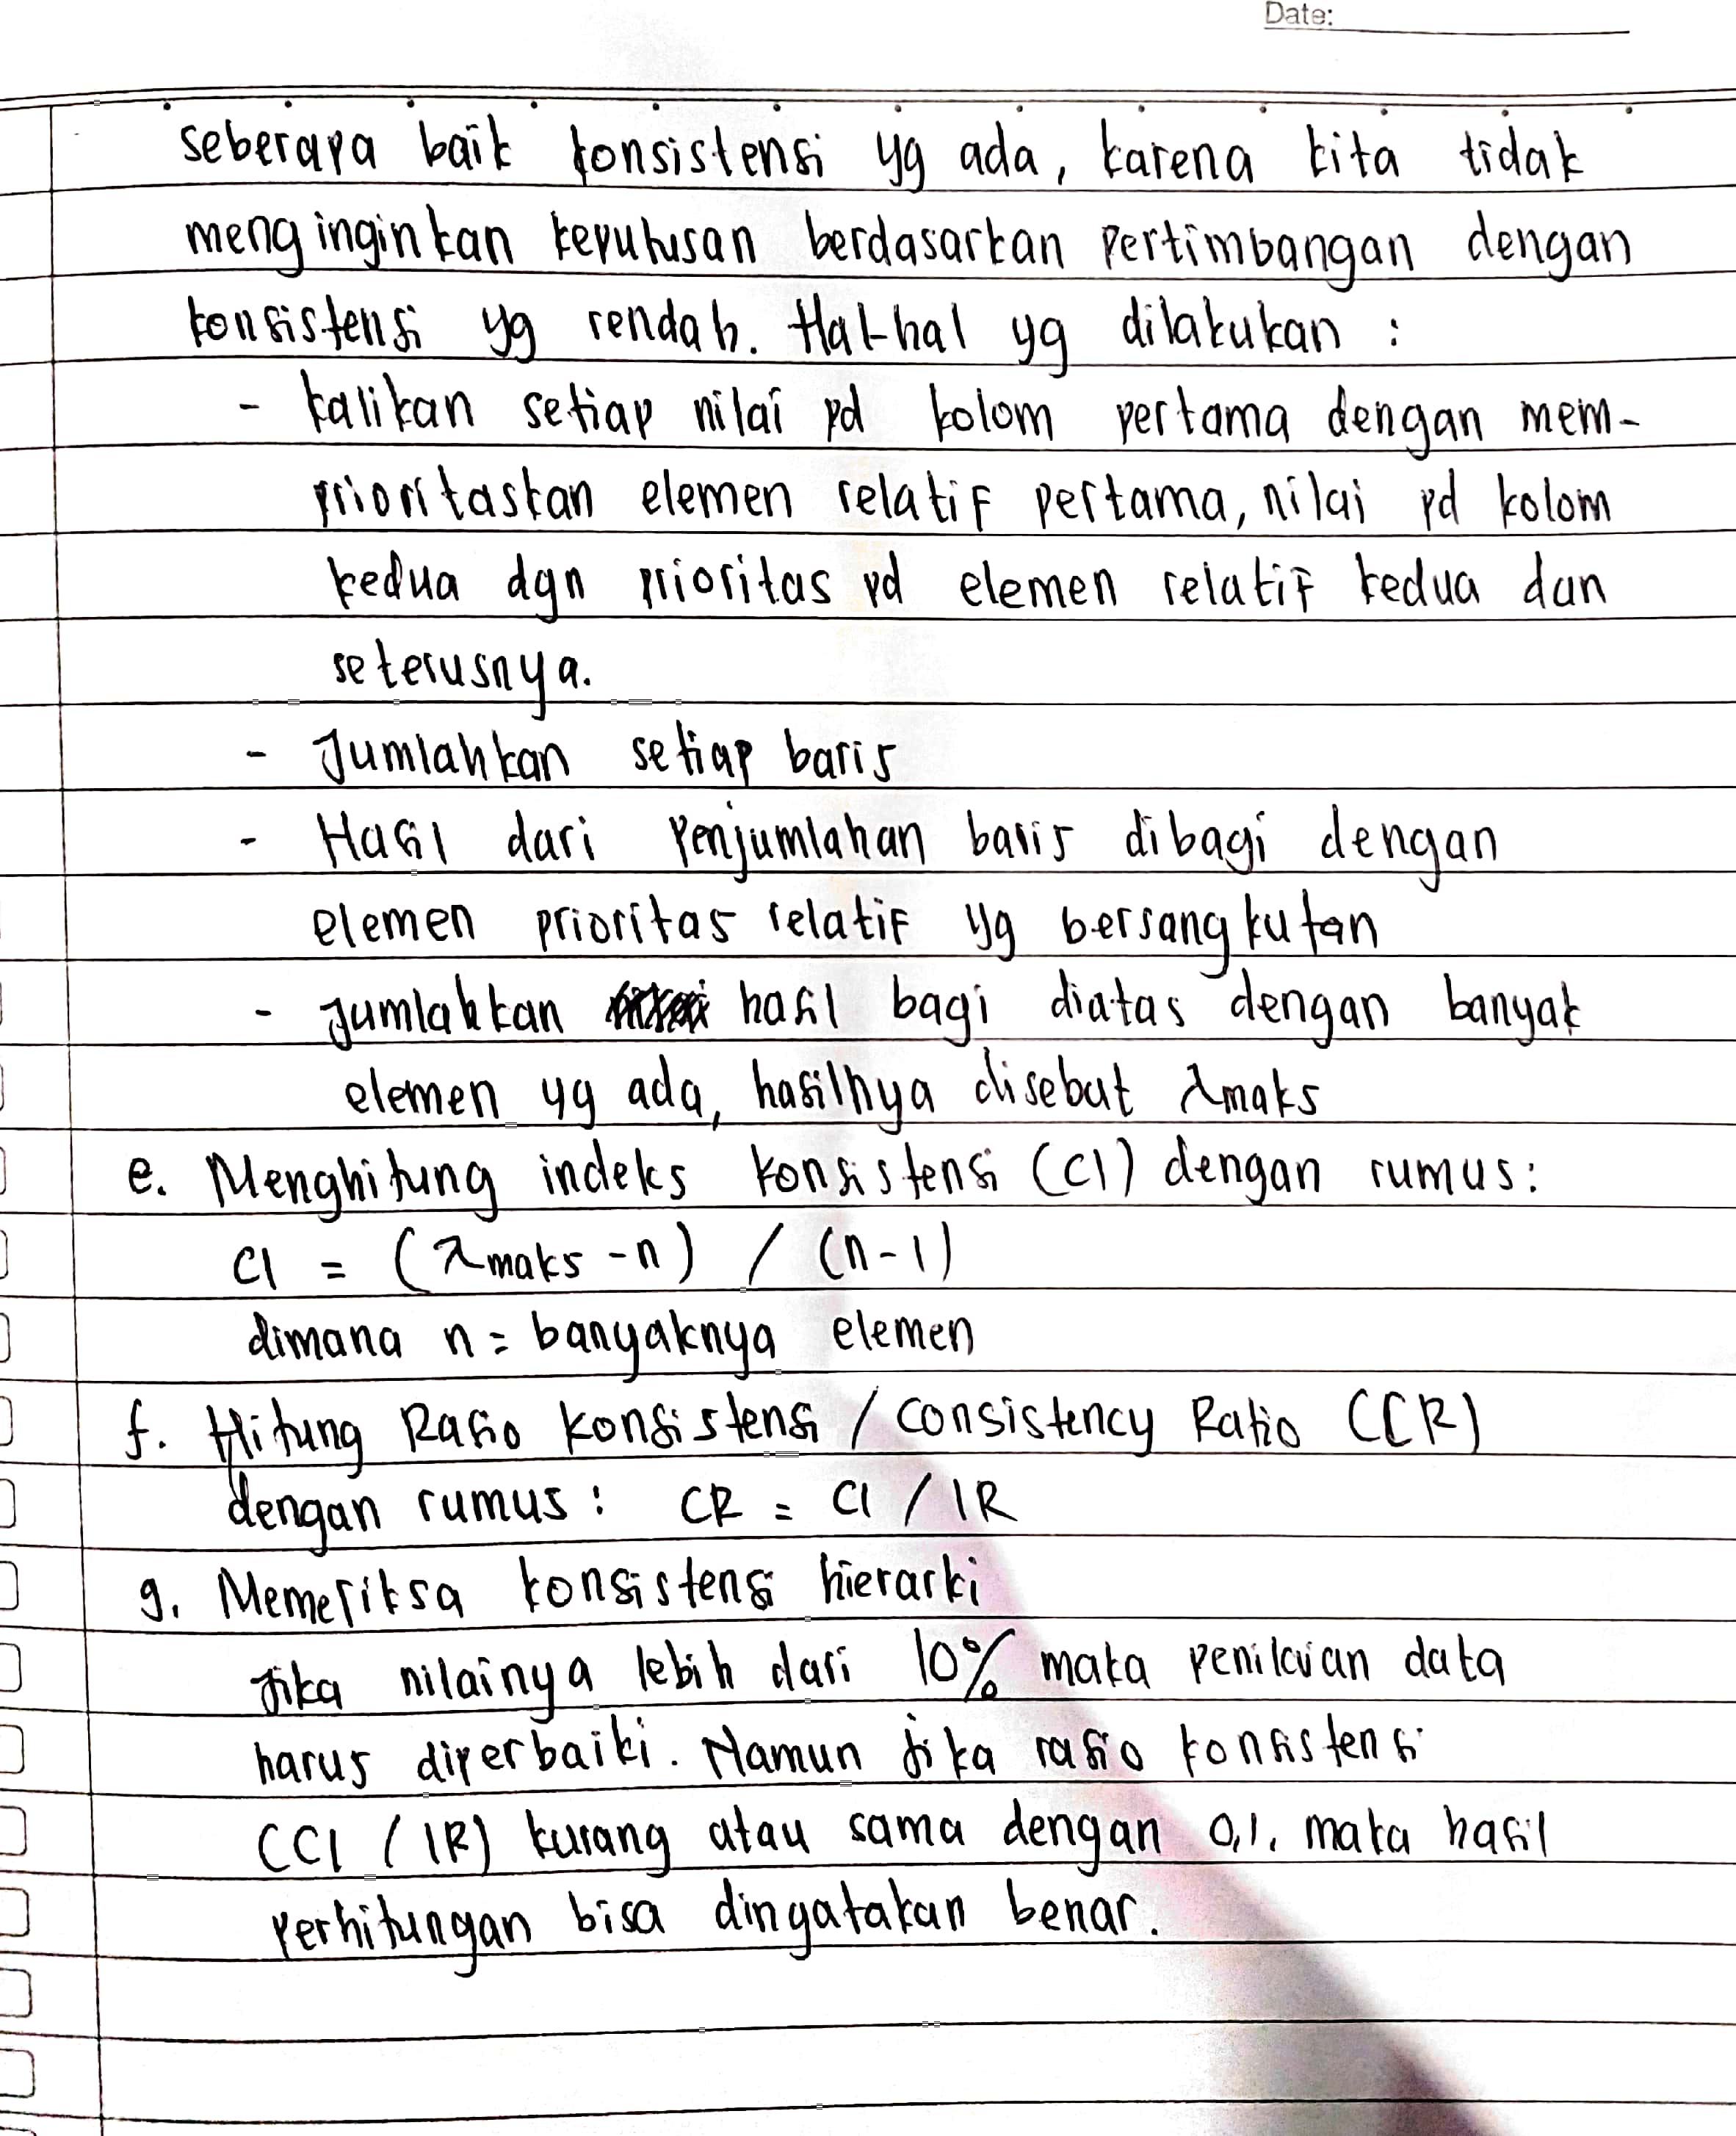 Date:
seberapa baik konsistensi yg ada, karena kita tidak
menginginkan keputusan berdasarkan pertimbangan dengan
konsistensi yg rendah. Hal-hal yg dilakukan :
- kalikan setiap nilai pd kolom pertama dengan mem-
prioritaskan elemen relatif pertama, nilai pd kolom
kedua dgn prioritas pd elemen relatif kedua dan
seterusnya.
- Jumlahkan setiap baris
- Hasil dari Penjumlahan baris dibagi dengan
elemen prioritas relatif yg bersangkutan
- Jumlahkan hasil bagi diatas dengan banyak
elemen yg ada, hasilnya disebut λmaks
e. Menghitung indeks konsistensi (CI) dengan rumus:
CI = (λmaks - n) / (n - 1)
dimana n = banyaknya elemen
f. Hitung Rasio Konsistensi / Consistency Ratio (CR)
dengan rumus : CR = CI / IR
g. Memeriksa konsistensi hierarki
Jika nilainya lebih dari 10% maka penilaian data
harus diperbaiki. Namun jika rasio konsistensi
(CI / IR) kurang atau sama dengan 0,1. maka hasil
perhitungan bisa dinyatakan benar.